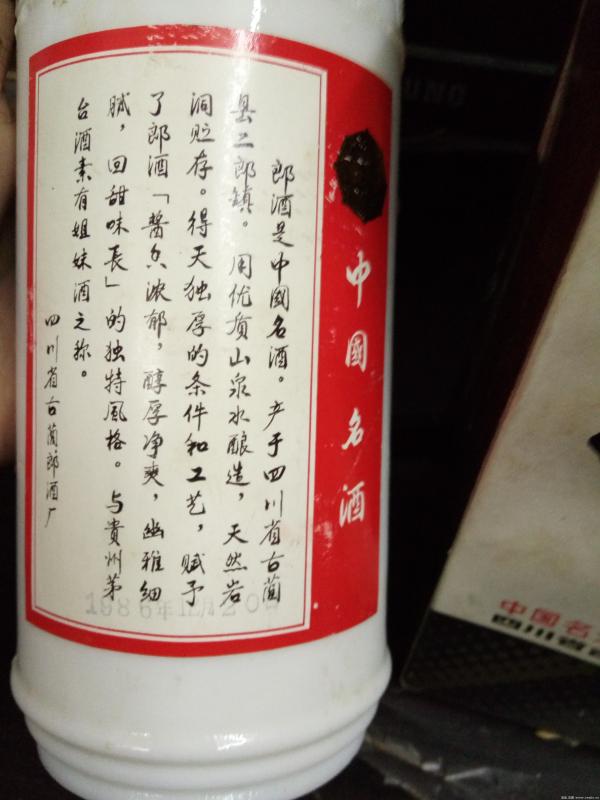 中國名酒
郎酒是中國名酒。产于四川省古蔺
县二郎镇。用优质山泉水酿造，天然岩
洞贮存。得天独厚的条件和工艺，赋予
了郎酒「酱香浓郁，醇厚净爽，幽雅细
腻，回甜味長」的独特風格。与貴州茅
台酒素有姐妹酒之称。
四川省古蔺郎酒厂
1986年12月20日
UNG
中国名
四川省